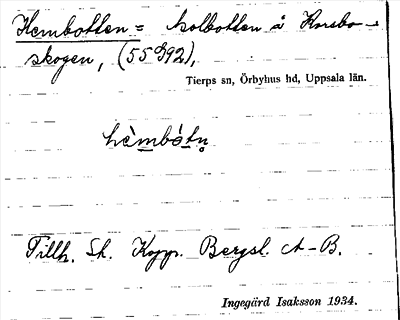 Hembotten = kolbotten å Korsbo-
skogen, (55 892),
Tierps sn, Örbyhus hd, Uppsala län.
hèmbòtn̥
Tillh. St. Kopp. Bergsl. A-B.
Ingegärd Isaksson 1934.